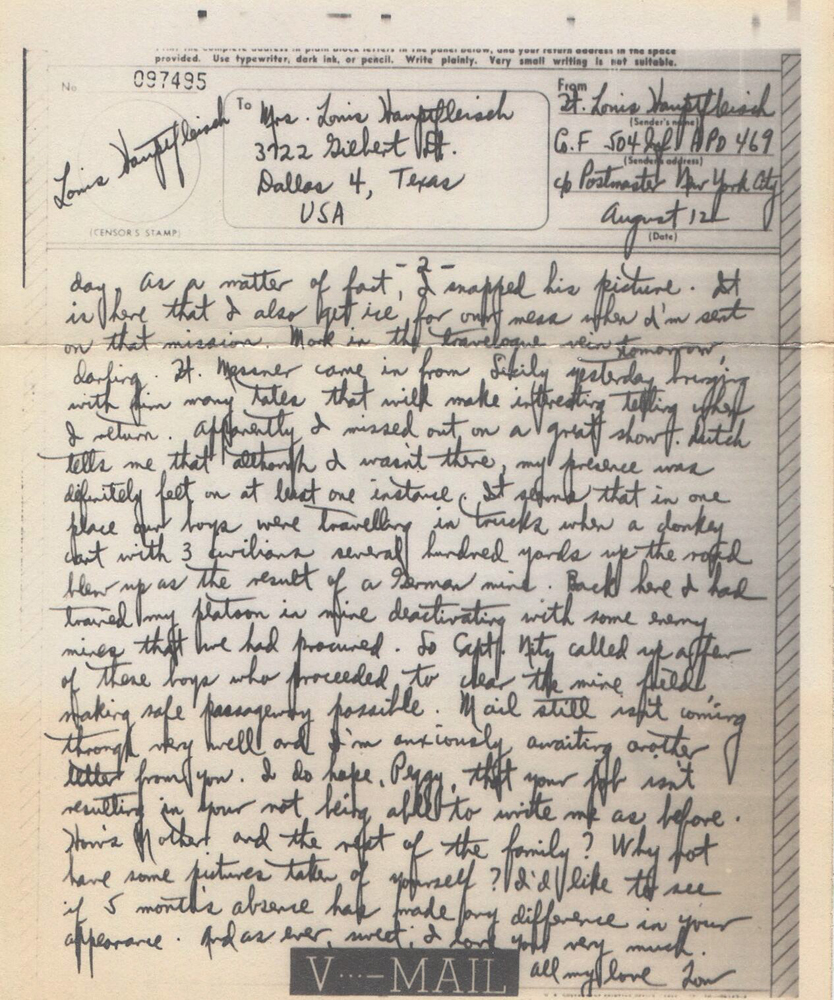 Print the complete address in plain block letters in the panel below, and your return address in the space
provided. Use typewriter, dark ink, or pencil. Write plainly. Very small writing is not suitable.
No 097495
Louis Hauptfleisch
(CENSOR'S STAMP)
To Mrs. Louis Hauptfleisch
3722 Gilbert St.
Dallas 4, Texas
USA
From
Lt. Louis Hauptfleisch
(Sender's name)
Co. F 504 Inf APO 469
(Sender's address)
c/o Postmaster New York City
August 12
(Date)
- 2 -
day. As a matter of fact, I snapped his picture. It
is here that I also get ice, for our mess when I'm sent
on that mission. More in the travelogue vein tomorrow,
darling. Lt. Messner came in from Sikily yesterday bringing
with him many tales that will make interesting telling when
I return. Apparently I missed out on a great show. Dutch
tells me that although I wasn't there, my presence was
definitely felt on at least one instance. It seems that in one
place our boys were travelling in trucks when a donkey
cart with 3 civilians several hundred yards up the road
blew up as the result of a German mine. Back here I had
trained my platoon in mine deactivating with some enemy
mines that we had procured. So Capt. called up a few
of these boys who proceeded to clear the mine field
making safe passageway possible. Mail still isn't coming
through very well and I'm anxiously awaiting another
letter from you. I do hope, Peggy, that your job isn't
resulting in your not being able to write me as before.
How's Mother and the rest of the family? Why not
have some pictures taken of yourself? I'd like to see
if 5 months absence has made any difference in your
appearance. And as ever, sweet, I love you very much.
All my love Lou
V···–MAIL